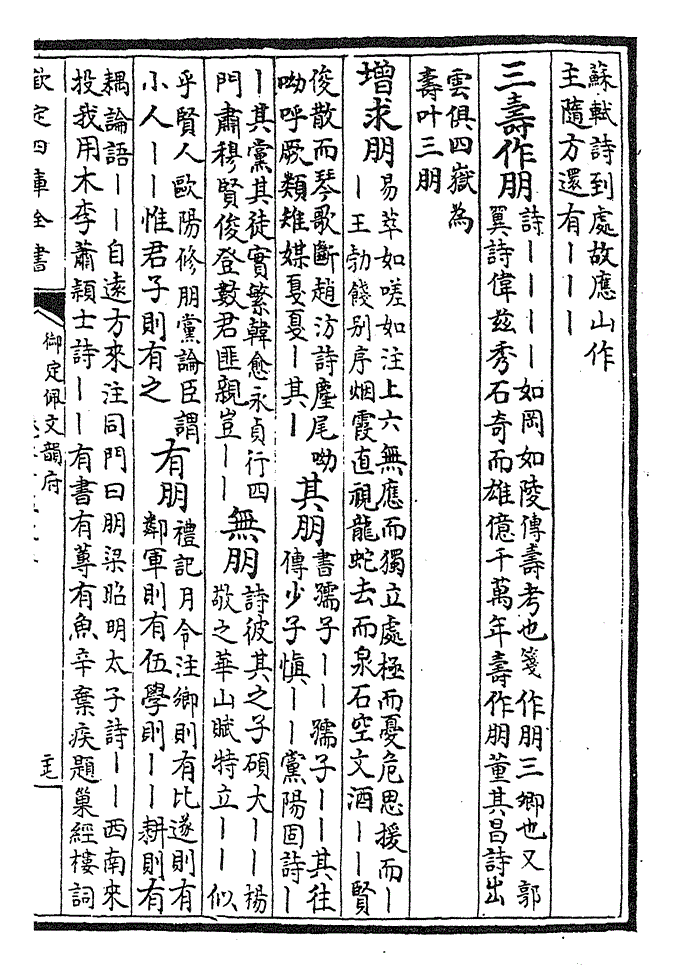 蘇軾詩到處故應山作
主隨方還有｜｜｜
三壽作朋
詩｜｜｜｜如岡如陵傳壽考也箋作朋三卿也又郭
翼詩偉兹秀石奇而雄億千萬年壽作朋董其昌詩出
雲俱四嶽為
壽叶三朋
增求朋
易萃如嗟如注上六無應而獨立處極而憂危思援而｜
｜王勃餞别序烟霞直視龍蛇去而泉石空文酒｜｜賢
俊散而琴歌斷趙汸詩麈尾呦
呦呼厥類雉媒戛戛｜其｜
其朋
書孺子｜｜孺子｜｜其往
傳少子慎｜｜黨陽固詩｜
｜其黨其徒實繁韓愈永貞行四
門肅穆賢俊登數君匪親豈｜｜
無朋
詩彼其之子碩大｜｜楊
敬之華山賦特立｜｜似
乎賢人歐陽修朋黨論臣謂
小人｜｜惟君子則有之
有朋
禮記月令注鄉則有比遂則有
鄰軍則有伍學則｜｜耕則有
耦論語｜｜自遠方來注同門曰朋梁昭明太子詩｜｜西南來
投我用木李蕭穎士詩｜｜有書有蓴有魚辛棄疾題巢經樓詞
欽定四庫全書
御定佩文韻府